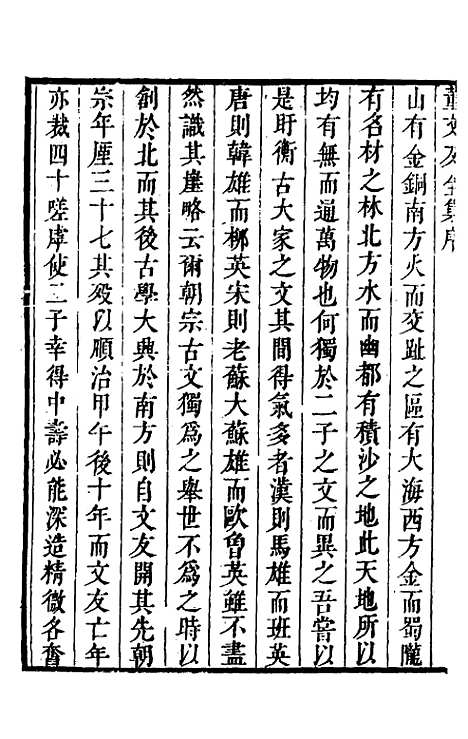 董文友全集序
山有金銅南方火而交趾之區有大海西方金而蜀隴
有名材之林北方水而幽都有積沙之地此天地所以
均有無而通萬物也何獨於二子之文而異之吾嘗以
是盱衡古大家之文其間得氣多者漢則馬雄而班英
唐則韓雄而栁英宋則老蘇大蘇雄而歐曾英雖不盡
然識其崖略云爾朝宗古文獨爲之舉世不爲之時以
創於北而其後古學大興於南方則自文友開其先朝
宗年厪三十七其殁以順治甲午後十年而文友亡年
亦裁四十嗟虖使二子幸得中壽必能深造精微各奮